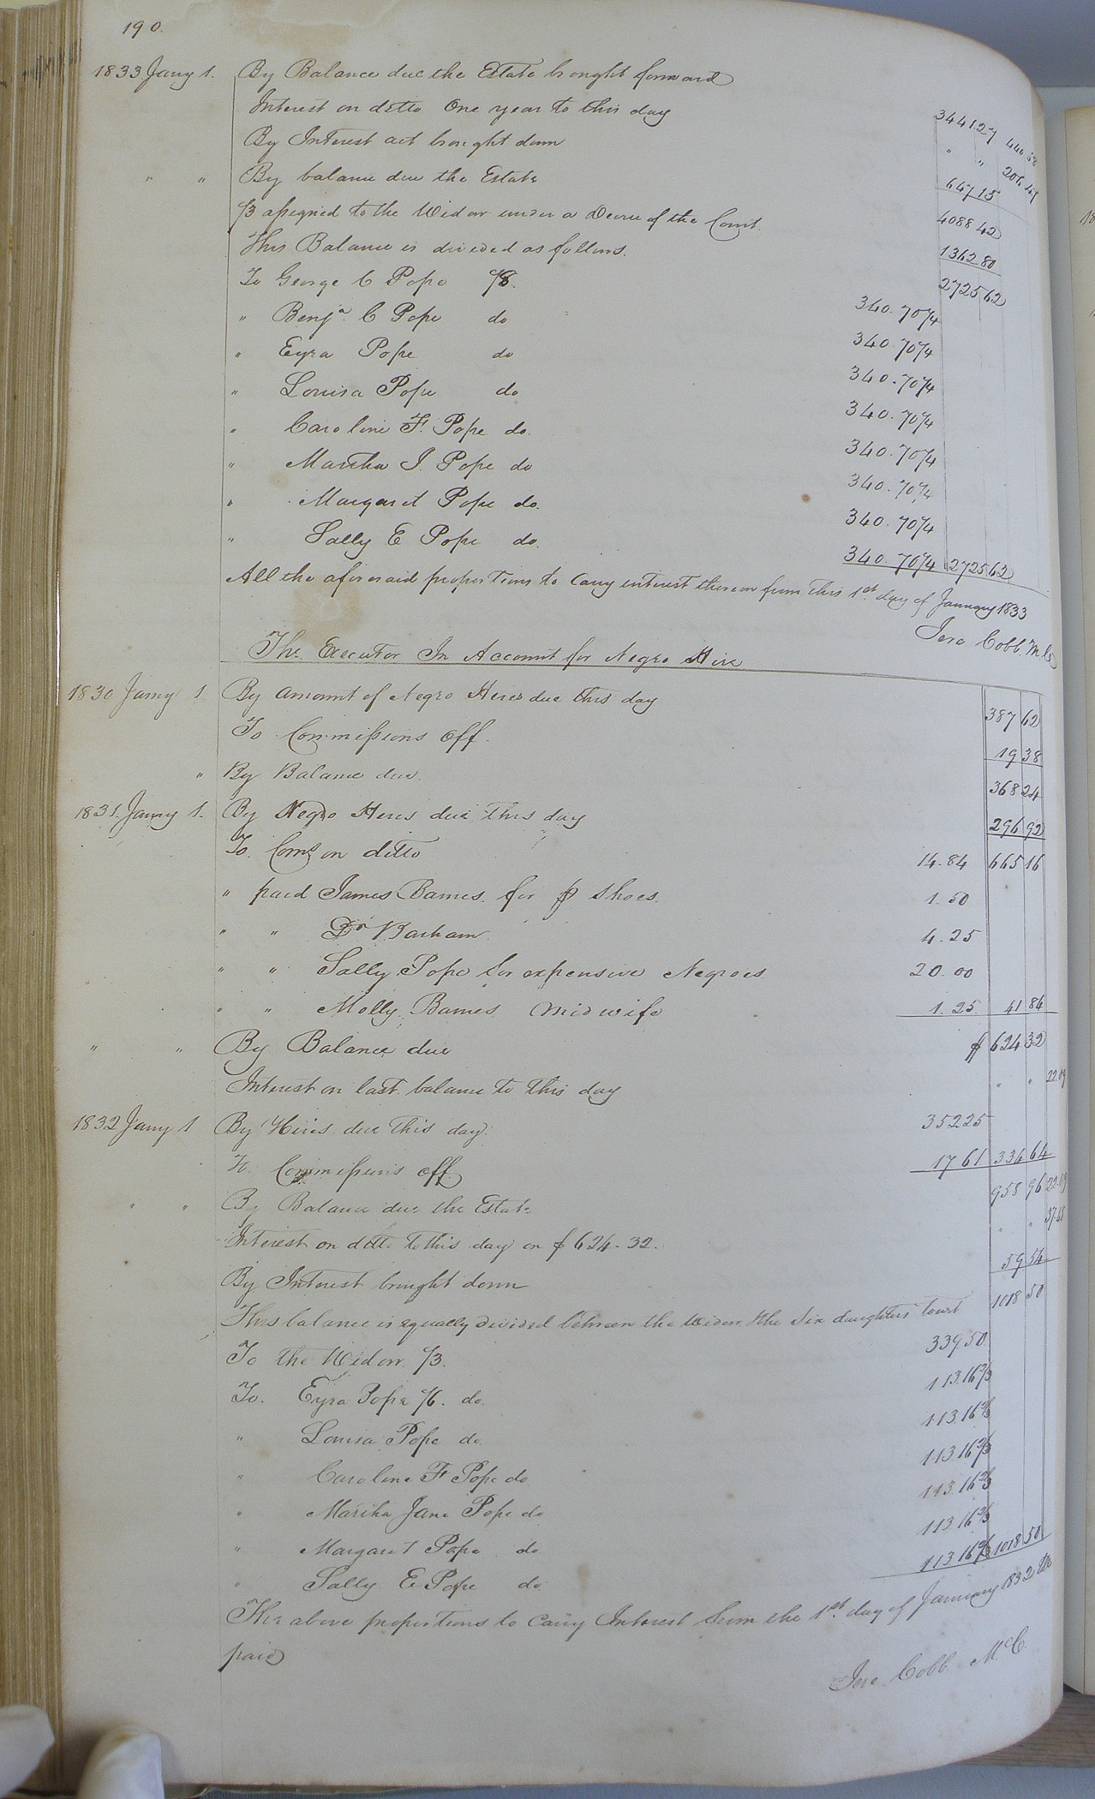 190.
1833 Jany 1. By Balance due the Estate brought forward 3441 27 440.58
Interest on ditto One year to this day " " 206.47
By Interest act brought down 647 15
" " By balance due the Estate 4088 42
1/3 assigned to the Widow under a Decree of the Court. 1362 80
This Balance is divided as follows. 2725 62
To George C Pope 1/8. 340.70 1/4
" Benja. C Pope do 340.70 1/4
" Eyra Pope do 340.70 1/4
" Louisa Pope do 340.70 1/4
" Caroline F. Pope do. 340.70 1/4
" Martha J. Pope do 340.70 1/4
" Margaret Pope do. 340.70 1/4
" Sally E Pope do. 340.70 1/4 2725 62
All the aforesaid proportions to Carry interest thereon from this 1st. day of January 1833
Jere Cobb M.C.
The Executor In Account for Negro Hire
1830 Jany 1. By amount of Negro Hires due this day 387 62
To Commissions off. 19 38
" By Balance due. 368 24
1831. Jany 1. By Negro Hires due this day 296 92
To Coms on ditto 14.84 665 16
" paid James Barnes for pr Shoes. 1.50
" " Dr Barham 4.25
" " Sally Pope for expensive Negroes 20.00
" " Molly Barnes Midwife 1.25 41 84
" " By Balance due $ 624 32
Interest on last balance to this day " " 22.09
1832 Jany 1 By Hires due this day. 352 25
To Commissions off 17 61 334 64
" " By Balance due the Estate 958 96 22.09
Interest on ditto to this day on $624.32. " " 37.45
By Interest brought down 59 54
This balance is equally divided between the Widow & the Six daughters to wit 1018 50
To the Widow 1/3. 339 50
To. Eyra Pope 1/6. do. 113.16 2/3
" Louisa Pope do. 113.16 2/3
" Caroline F Pope do 113.16 2/3
" Martha Jane Pope do 113.16 2/3
" Margaret Pope do 113.16 2/3
" Sally E Pope do 113.16 2/3 1018 50
The above proportions to carry Interest from the 1st. day of January 1832 till
paid
Jere Cobb M.C